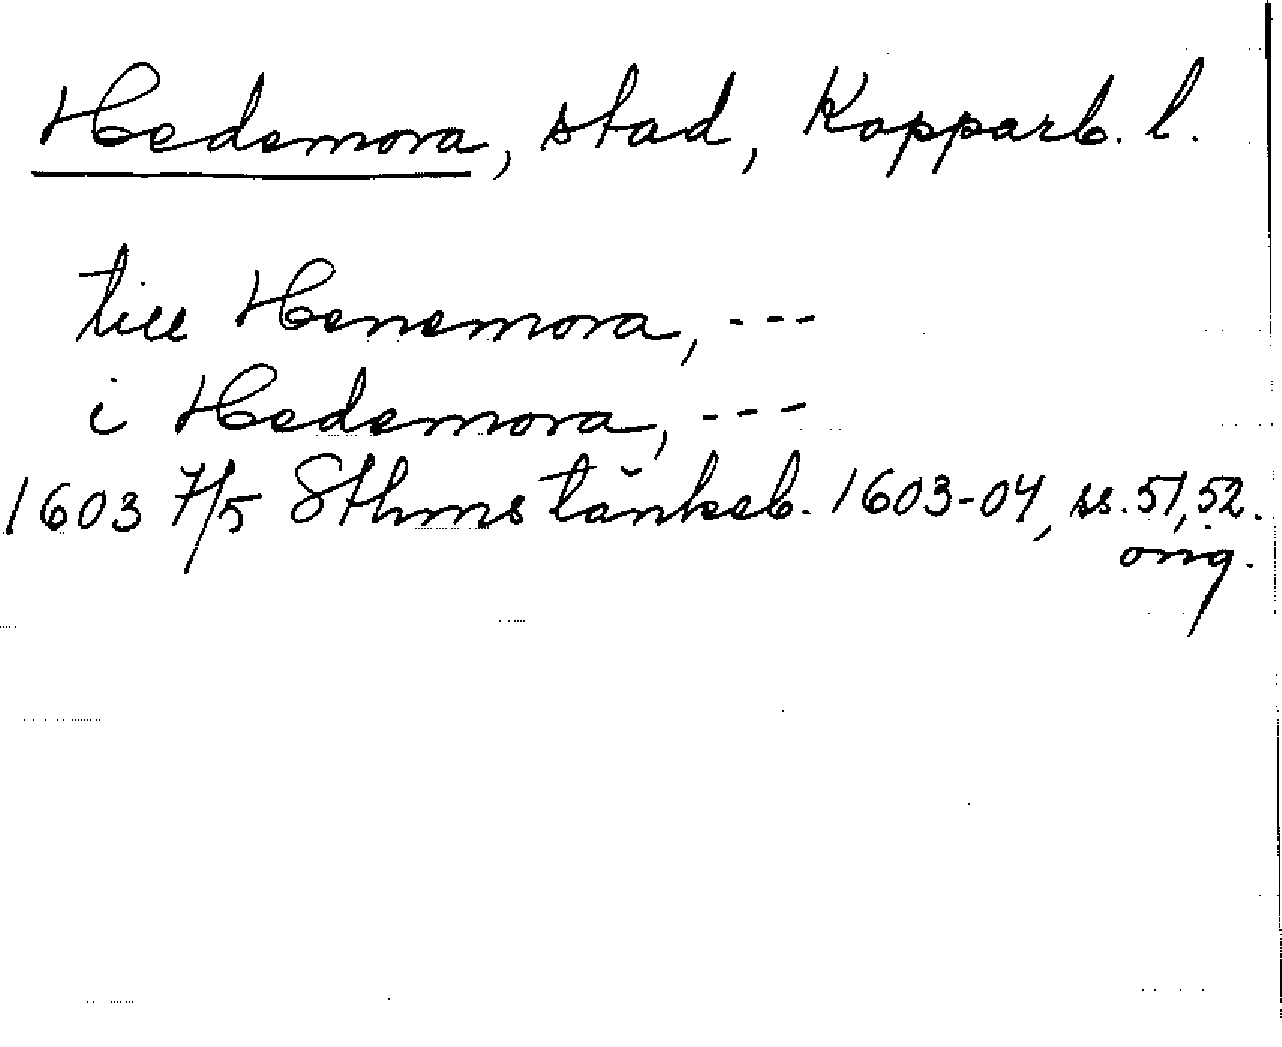 Hedemora, stad, Kopparb. l.
till Henemora, ---
i Hedemora, ---
1603 7/5 Sthms tänkeb. 1603-04, ss. 51, 52.
orig.